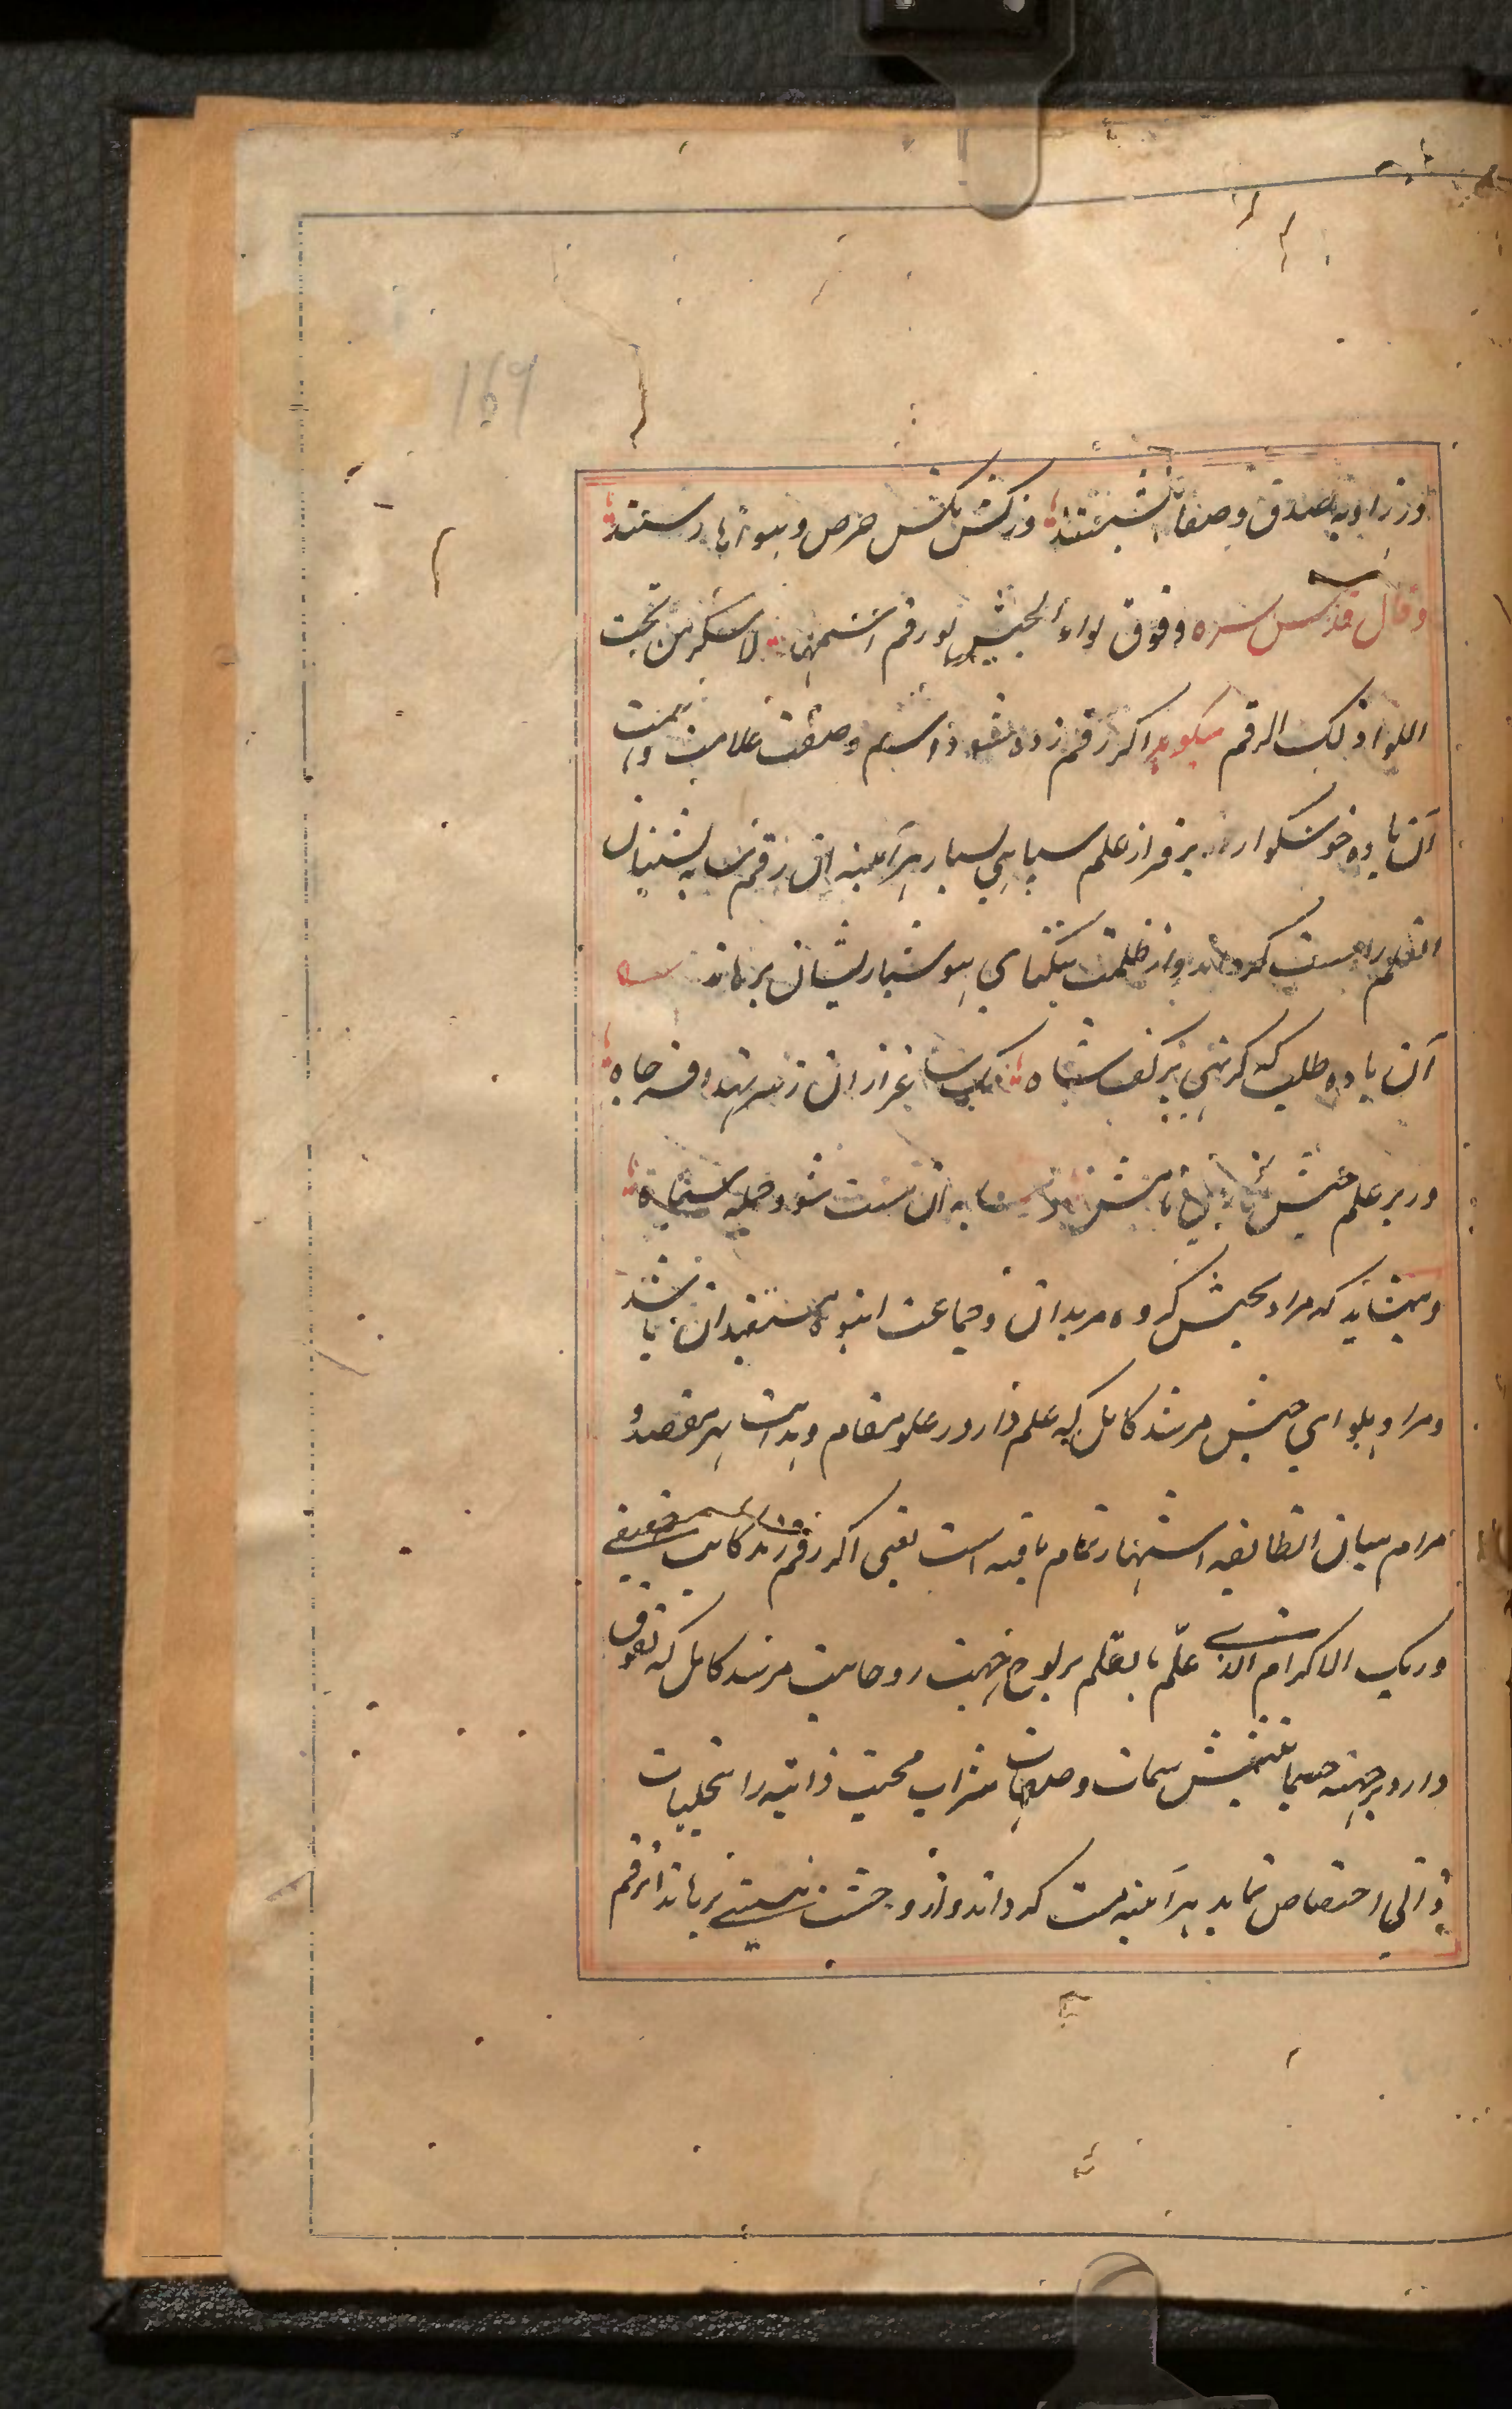 169
در زاویه صدق و صفا بنشستند وز کش مکش حرص و هوا وارستند
و قال قدس سره وفوق لواء الجیش لو رقم اسمها لاسکر من تحت
اللوا ذلک الرقم میکوید اکر رقم زده شود اسم و صفت علامت و سمت
آن باده خوشکوار بر فراز علم سپاهی بسیار هرآینه آن رقم سایه نشینان
العلم را مست کرداند و از ظلمت تنکنای هوشیاریشان برهاند
آن باده طلب که کر نهی بر کف شاه ساغر از آن ز سر نهد افسر جاه
ور بر علم جیش نامش سایه آن مست شود جمله سپاه
و میشاید که مراد بجیش کروه مریدان و جماعت انبوه مستفیدان باشد
و مراد بلوای جیش مرشد کامل که علم وار در علو مقام و هدایت بهر مقصد و
مرام میان الطایفه اشتهار تمام یافته است یعنی اکر رقم زند کاتب حقیقی
وربک الاکرم الذی علّم بالقلم بر لوح جبهت روحانیت مرشد کامل که تفوق
دارد بر جهت جسمانیتش سمات و صفات شراب محبت ذاتیه را بتجلیات
ذاتی اختصاص نماید هرآینه مست کرداند و از وحشت نیستی برهاند آن رقم